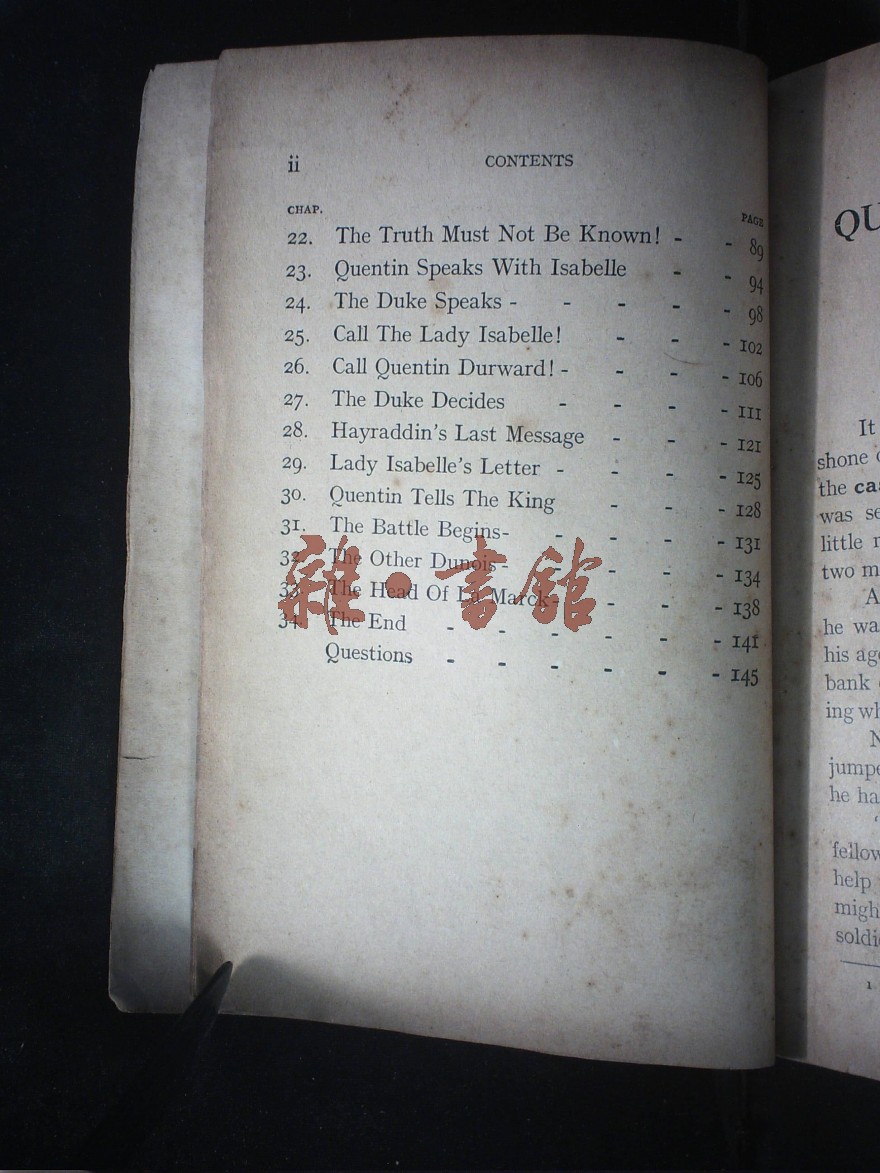 ii CONTENTS
CHAP. PAGE
22. The Truth Must Not Be Known! - - 89
23. Quentin Speaks With Isabelle - - 94
24. The Duke Speaks - - - - - 98
25. Call The Lady Isabelle! - - - 102
26. Call Quentin Durward! - - - - 106
27. The Duke Decides - - - - 111
28. Hayraddin's Last Message - - - 121
29. Lady Isabelle's Letter - - - - 125
30. Quentin Tells The King - - - 128
31. The Battle Begins- - - - - 131
32. The Other Dunois - - - - 134
33. The Head Of La Marck - - - - 138
34. The End - - - - - - 141
Questions - - - - - - 145
雜·書館
QU
It
shone
the cas
was se
little
two m
A
he wa
his ag
bank
ing wh
N
jumpe
he ha
fellow
help
migh
soldi
1.